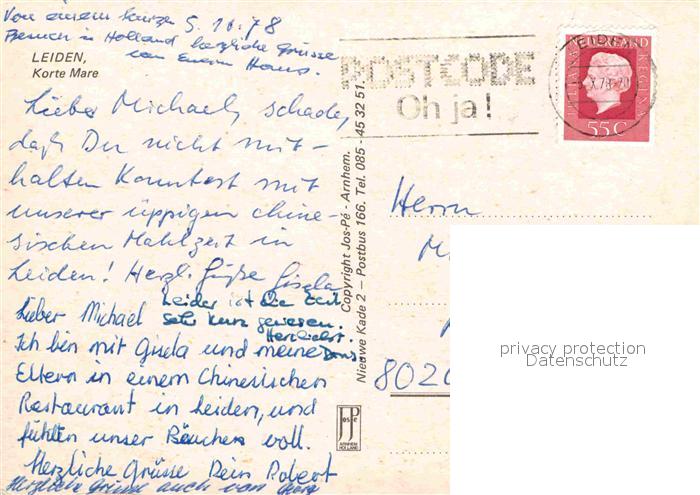 Von einem kurzen 5. 10. 78
Besuch in Holland herzliche Grüsse
von Eurem Hans.
LEIDEN,
Korte Mare
Lieber Michael, schade,
daß Du nicht mit-
halten konntest mit
unserer üppigen chine-
sischen Mahlzeit in
Leiden! Herzl. Grüße Gisela
Leider ist die Zeit
sehr kurz gewesen.
Herzlichst.
Lieber Michael
Ich bin mit Gisela und meinen
Eltern in einem Chinesischen
Restaurant in Leiden, und
fühlen unser Bäuchen voll.
Herzliche Grüsse Dein Robert
Herzliche Grüsse auch von
Copyright Jos-Pé - Arnhem.
Nieuwe Kade 2 - Postbus 166. Tel. 085 - 45 32 51.
JosPe
ARNHEM
HOLLAND
POSTCODE
Oh ja!
NEDERLAND
JULIANA REGINA
55 C
Herrn
M
802
privacy protection
Datenschutz